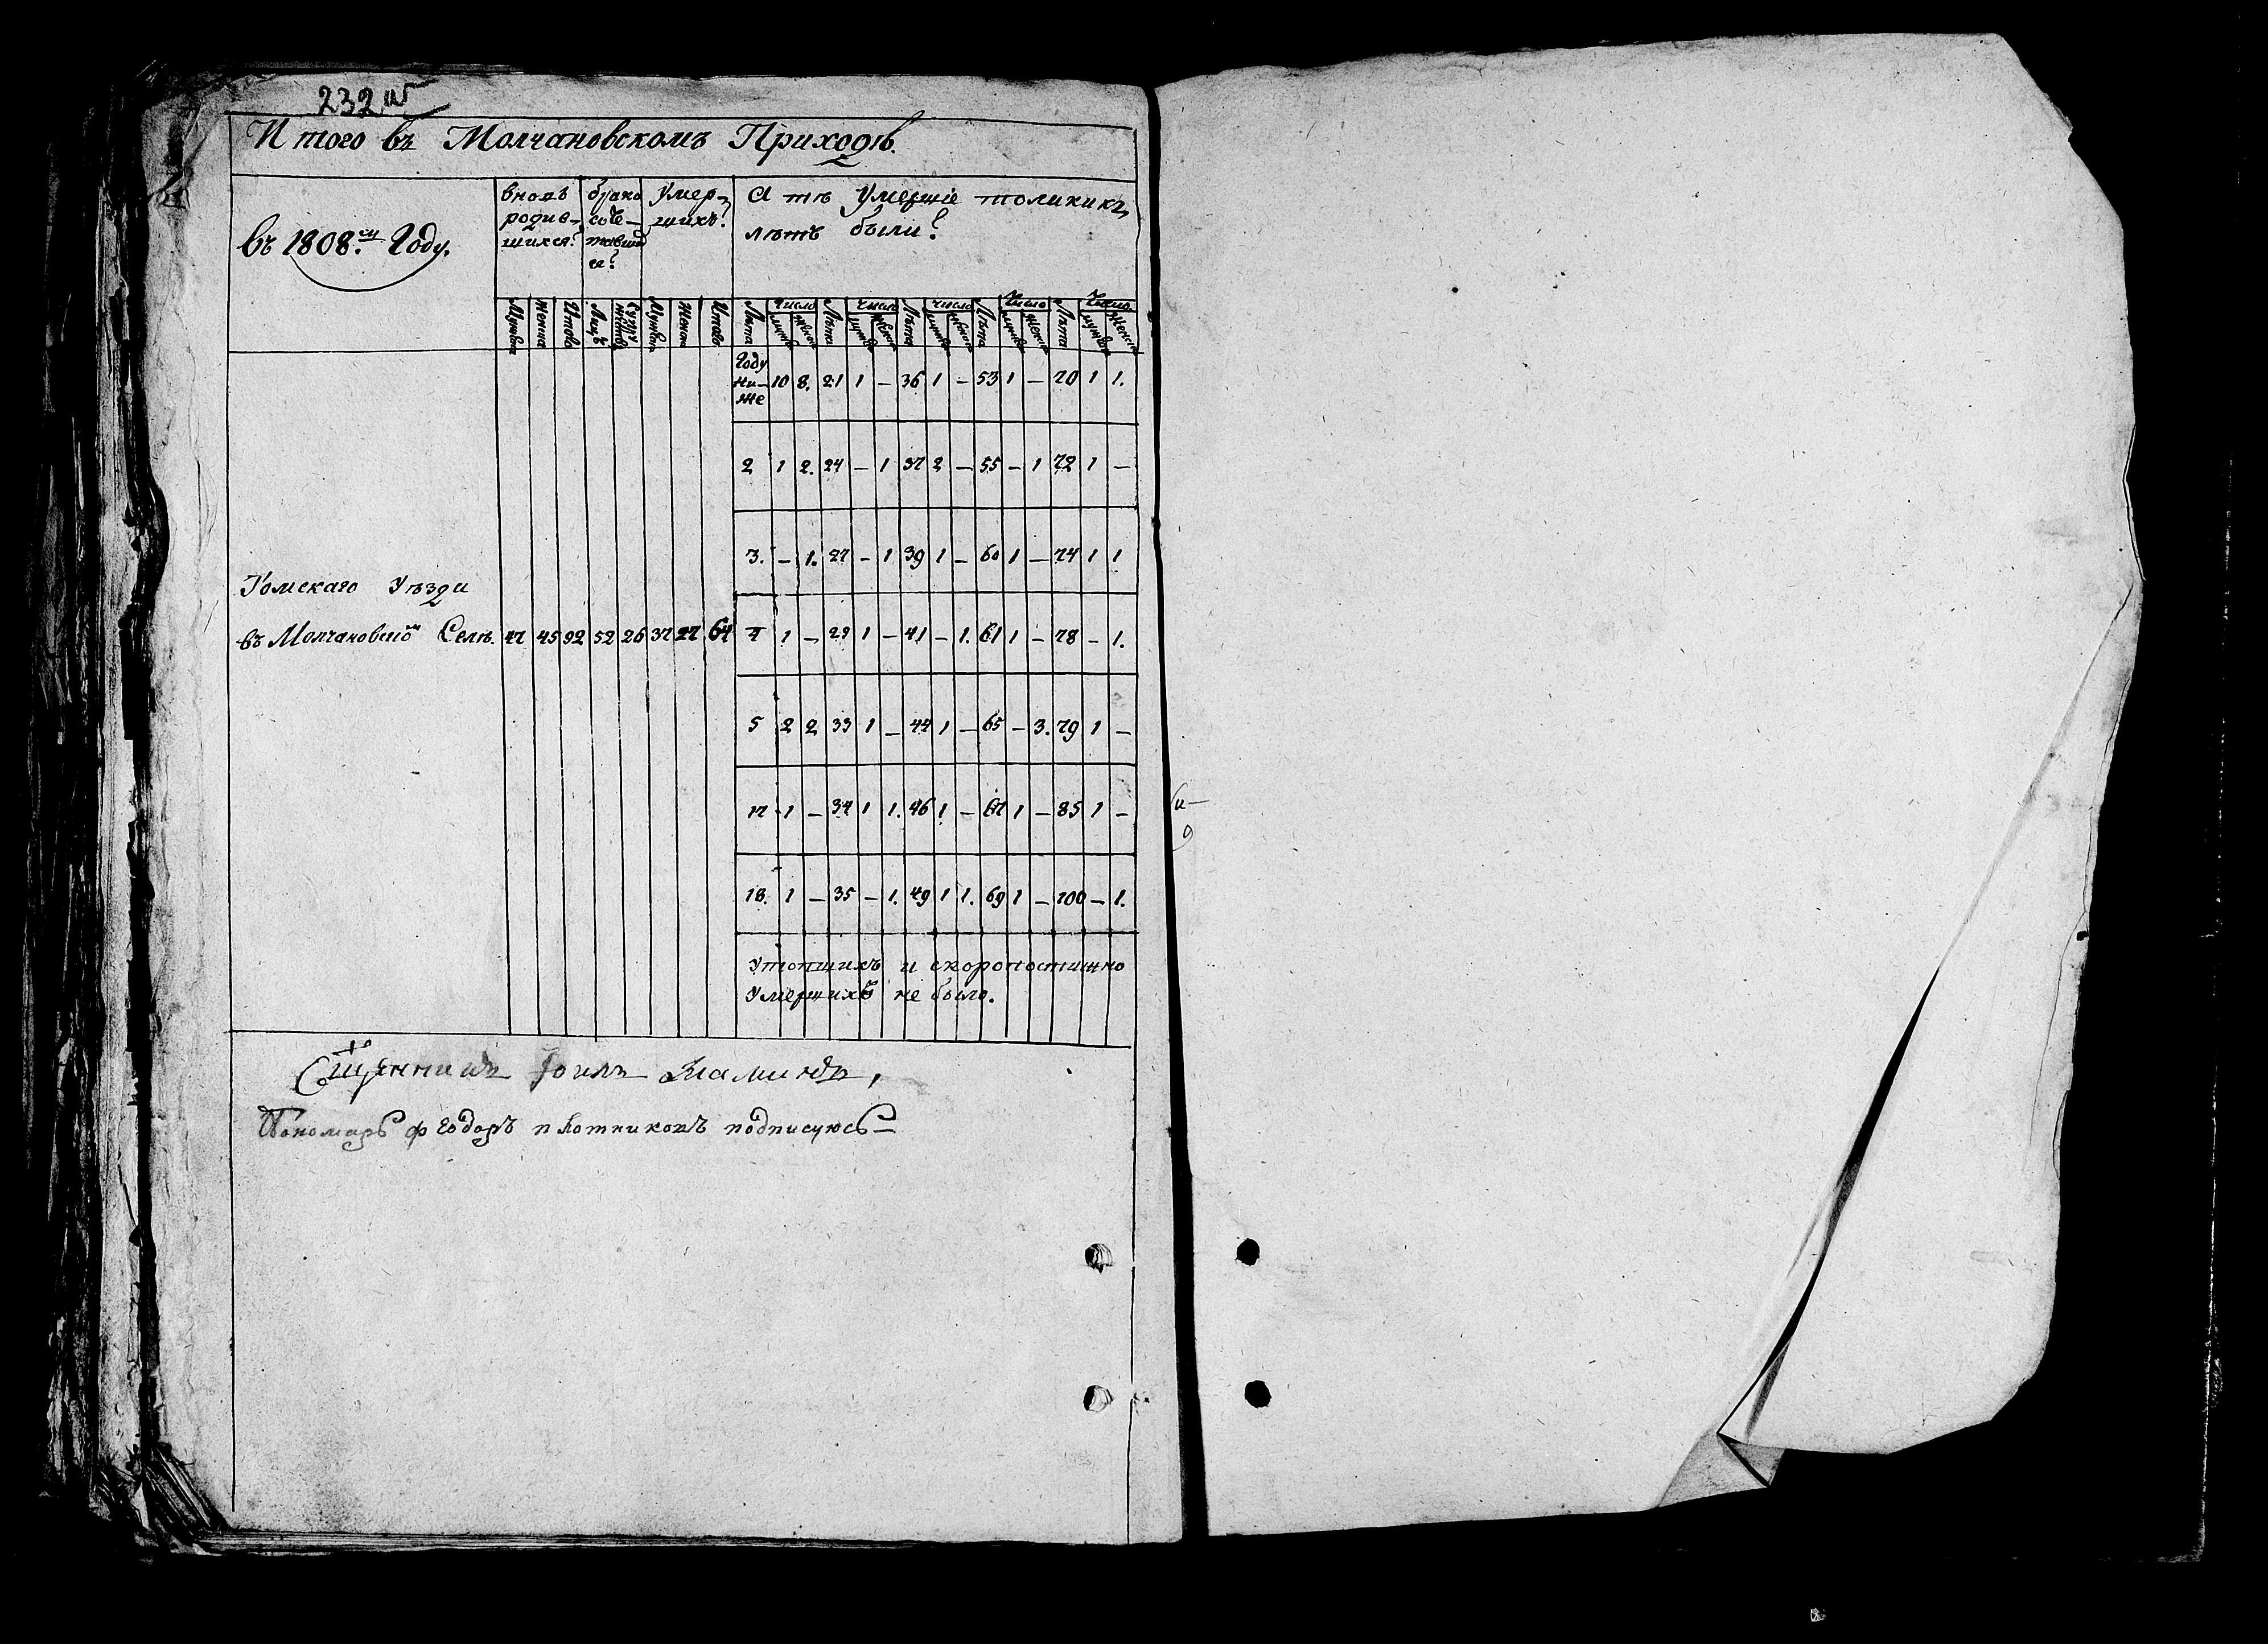 232 об
Итого въ Молчановскомъ Приходѣ.
въ 1808.мъ Году.
вновь родив-шихся?
брако соче-тавших ся?
Умер-шихъ?
А тѣ Умершіе толикихъ
лѣтъ были?
Мужска Женска Итого Лицъ Супружествъ Мужска Женска Итого
Лѣта Число мужска женска Лѣта Число мужска женска Лѣта Число мужска женска Лѣта Число мужска женска Лѣта Число мужска женска
Году ни-же 10 8. 21 1 — 36 1 — 53 1 — 70 1 1.
2 1 2. 24 — 1 37 2 — 55 — 1 72 1 —
3. — 1. 27 — 1 39 1 — 60 1 — 74 1 1
Томскаго Уѣзда
въ Молчановскомъ Селѣ. 47 45 92 52 26 37 27 64
4 1 — 29 1 — 41 — 1. 61 1 — 78 — 1.
5 2 2 33 1 — 44 1 — 65 — 3. 79 1 —
17 1 — 34 1 1. 46 1 — 67 1 — 85 1 —
18. 1 — 35 — 1. 49 1 1. 69 1 — 100 — 1.
Утопшихъ и скоропостижно
Умершихъ не было.
Сщенникъ
Пономарь Феодоръ плотниковъ подписуюсь